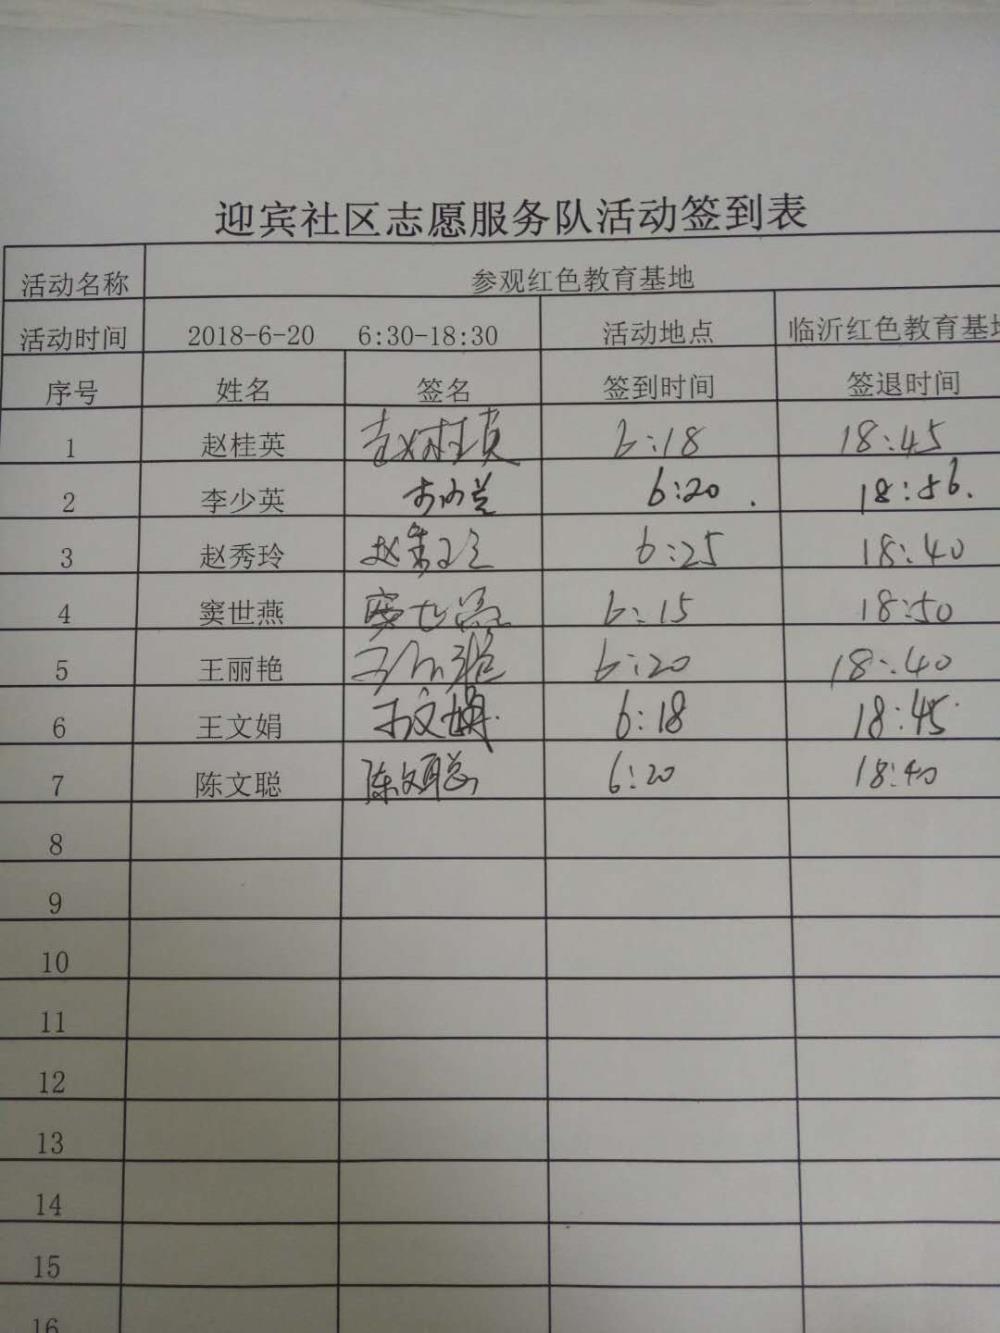 迎宾社区志愿服务队活动签到表
活动名称 参观红色教育基地
活动时间 2018-6-20 6:30-18:30 活动地点 临沂红色教育基地
序号 姓名 签名 签到时间 签退时间
1 赵桂英 6:18 18:45
2 李少英 6:20. 18:56.
3 赵秀玲 赵秀玲 6:25 18:40
4 窦世燕 窦世燕 6:15 18:50
5 王丽艳 6:20 18:40
6 王文娟 王文娟. 6:18 18:45
7 陈文聪 陈文聪 6:20 18:40
8
9
10
11
12
13
14
15
16